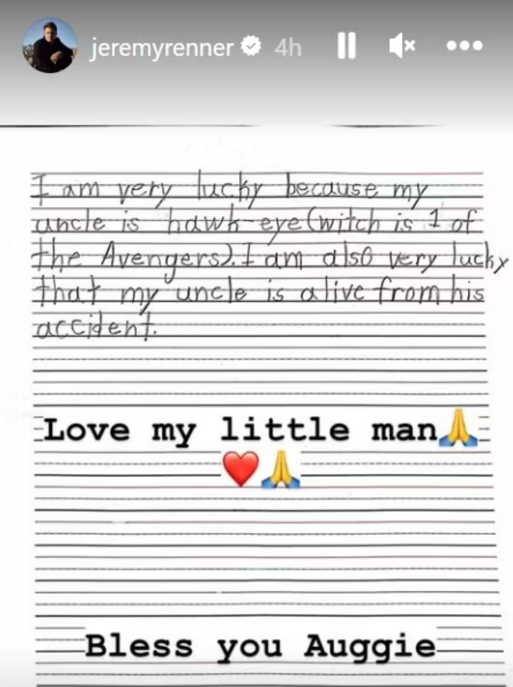 jeremyrenner 4h
I am very lucky because my
uncle is hawk-eye(witch is 1 of
the Avengers). I am also very lucky
that my uncle is alive from his
accident.
Love my little man🙏
❤️🙏
Bless you Auggie